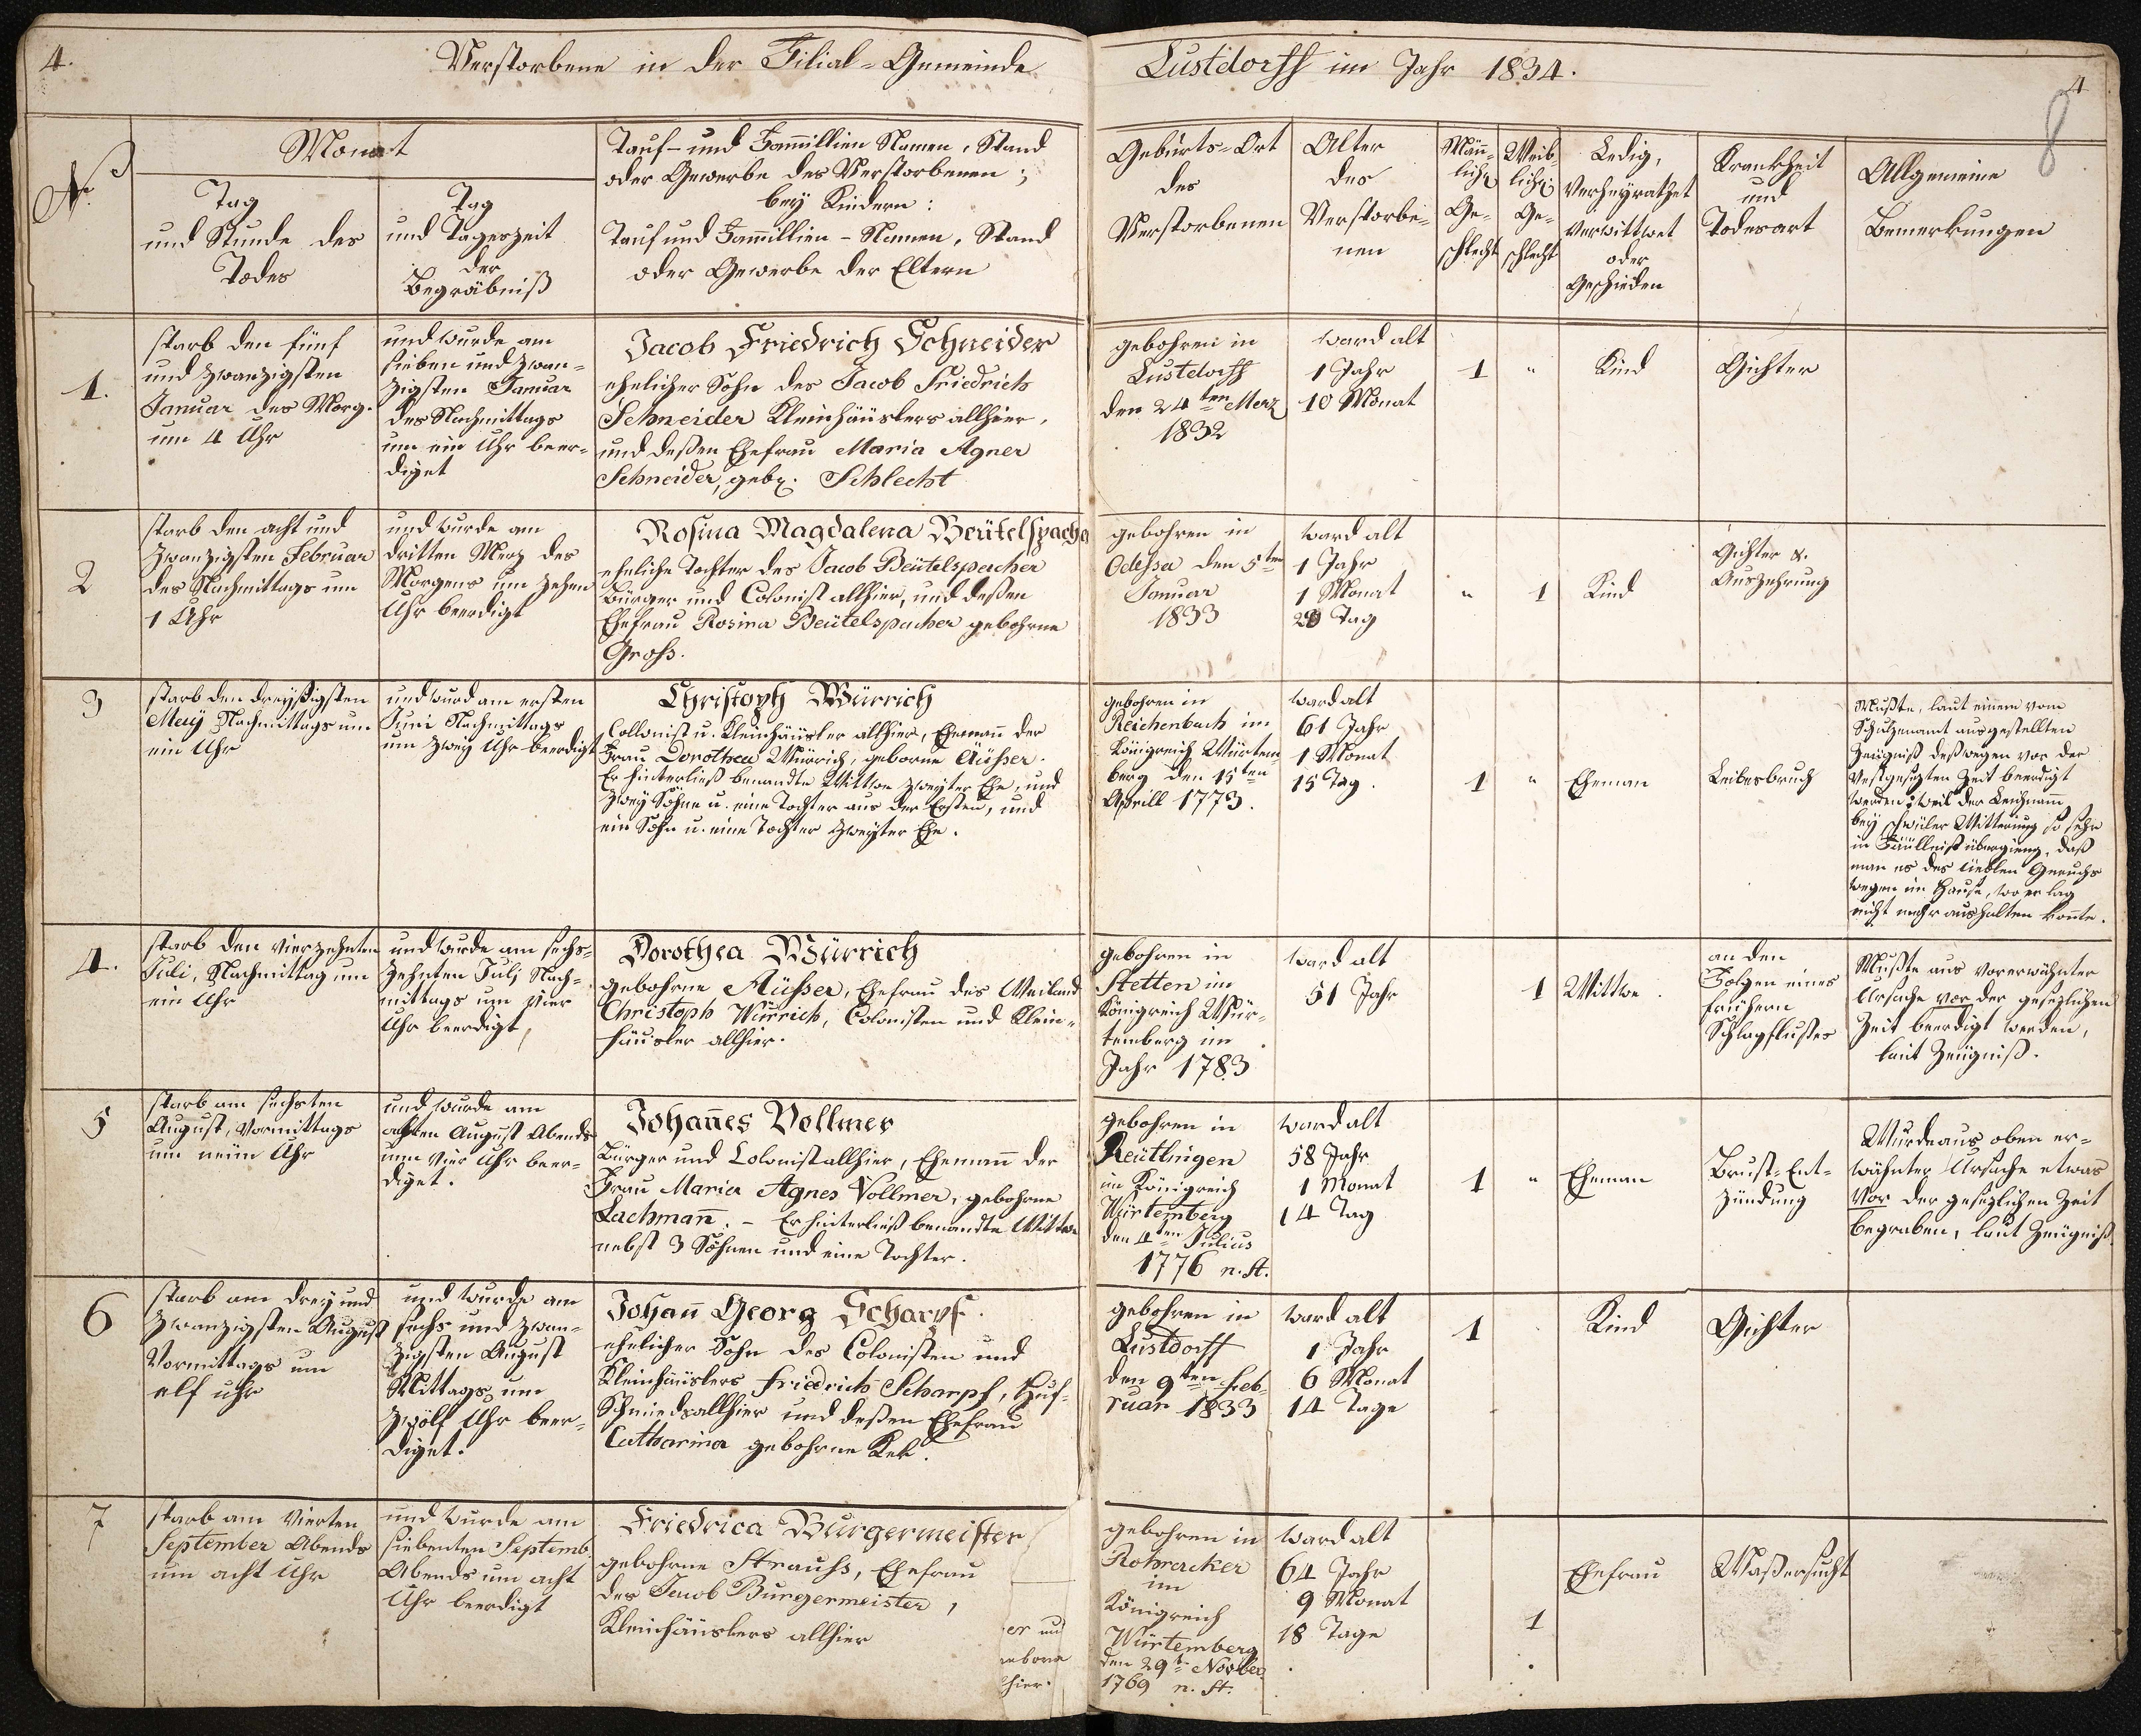 4.
Verstorbene in der Filial-Gemeinde
Lustdorff im Jahr 1834.
4
8
No
Monat
Tag
und Stunde des
Todes
Tag
und Tageszeit
der
Begräbniß
Tauf- und Fam̄illien Namen, Stand
oder Gewerbe des Verstorbenen;
bey Kindern:
Tauf und Fam̄illien-Namen, Stand
oder Gewerbe der Eltern
Geburts-Ort
des
Verstorbenen
Alter
des
Verstorbe-
nen
Män̄-
lich
Ge-
schlecht
Weib-
lich
Ge-
schlecht
Ledig,
Verheyrathet
Verwittwet
oder
Geschieden
Krankheit
und
Todesart
Allgemeine
Bemerkungen
1.
starb den fünf
und zwanzigsten
Januar des Morg.
um 4 Uhr
und wurde am
sieben und zwan-
zigsten Januar
des Nachmittags
um ein Uhr beer-
diget
Jacob Friedrich Schneider
ehelicher Sohn des Jacob Friedrich
Schneider Kleinhäuslers allhier,
und deßen Ehefrau Maria Agner
Schneider, geb. Schlecht
gebohren in
Lustdorff
den 24ten Merz
1832
ward alt
1 Jahr
10 Monat
1
"
Kind
Gichter
2
starb den acht und
zwanzigsten Februar
des Nachmittags um
1 Uhr
und wurde am
dritten Merz des
Morgens um zehen
Uhr beerdigt
Rosina Magdalena Beütelspacher
eheliche Tochter des Jacob Beütelspacher
Bürger und Colonist allhier, und deßen
Ehefrau Rosina Beütelspacher gebohrne
Groß.
gebohren in
Odeßa den 5ten
Januar
1833
ward alt
1 Jahr
1 Monat
Tag
"
1
Kind
Gichter &.
Auszehrung
3
starb den dreyßigsten
May Nachmittags um
ein Uhr
und wurd am ersten
Juni Nachmittags
um zwey Uhr beerdigt
Christoph Würrich
Collonist u. Kleinhäusler allhier, Eheman̄ der
Frau Dorothea Würrich, geborne Äüßer.
Er hinterließ benandte Wittwe zweyter Ehe, und
zwey Söhne u. eine Tochter aus der Ersten, und
ein Sohn u. eine Tochter zweyter Ehe.
gebohren in
Reichenbach im
Königreich Würtem
berg den 15ten
Aprill 1773.
ward alt
61 Jahr
1 Monat
15 Tag.
1
"
Eheman
Leibesbruch
Mußte, laut einem vom
Schulzenamt ausgestellten
Zeugniß deßwegen vor der
Vestgesezten Zeit beerdigt
werden; weil der Leichnam
bey schwüler Witterung so sehr
in Fäullniß übergieng, daß
man es des üeblen Geruchs
wegen im Hause, wo er lag
nicht mehr aushalten kon̄te.
4.
starb den vierzehnten
Juli, Nachmittag um
ein Uhr
und wurde am sechs-
zehnten Juli Nach-
mittags um vier
Uhr beerdigt,
Dorothea Würrich
gebohrne Äüßer, Ehefrau des Weiland
Christoph Würrich, Colonisten und Klein-
häusler allhier.
gebohren in
Stetten im
Königreich Wür-
temberg im
Jahr 1783
ward alt
51 Jahr
1
Wittwe.
an den
Folgen eines
frühern
Schlagflußes
Mußte aus vorerwähnter
Ursache vor der gesezlichen
Zeit beerdigt werden,
laut Zeügniß.
5
starb am sechsten
August, Vormittags
um neün Uhr
und wurde am
achten August Abends
um vier Uhr beer-
diget.
Johan̄es Vollmer
Bürger und Colonist allhier, Eheman̄ der
Frau Maria Agnes Vollmer, gebohrne
Lachman̄. - Er hinterließ benandte Wittwe
nebst 3 Söhnen und eine Tochter.
gebohren in
Reütlnigen
im Königreich
Würtemberg
den 4ten Julius
1776 n. St.
ward alt
58 Jahr
1 Monat
14 Tag
1
"
Eheman
Brust-Ent-
zündung
Wurde aus oben er-
wähnter Ursache etwas
Vor der gesezlichen Zeit
begraben, laut Zeügniß
6
starb am drey und
zwanzigsten August
Vormittags um
elf uhr
und wurde am
sechs und zwan-
zigsten August
Mittags um
zwölf Uhr beer-
diget.
Johan̄ Georg Scharpf.
ehelicher Sohn des Colonisten und
Kleinhäuslers Friedrich Scharpf, Huf-
Schmieds allhier und deßen Ehefrau
Catharina gebohrne Kek.
gebohren in
Lustdorff
den 9ten Feb-
ruar 1833
ward alt
1 Jahr
6 Monat
14 Tage
1
Kind
Gichter
7
starb am vierten
September Abends
um acht Uhr
und wurde am
siebenten Septemb.
Abends um acht
Uhr beerdigt
Friedrica Burgermeister
gebohrne Strauß, Ehefrau
des Jacob Burgermeister,
Kleinhäuslers allhier
er und
gebore
hier.
gebohren in
Rohracker
im
Königreich
Würtemberg
den 29t Novber
1769 n. St.
ward alt
64 Jahr
9 Monat
18 Tage
1
Ehefrau
Waßersucht